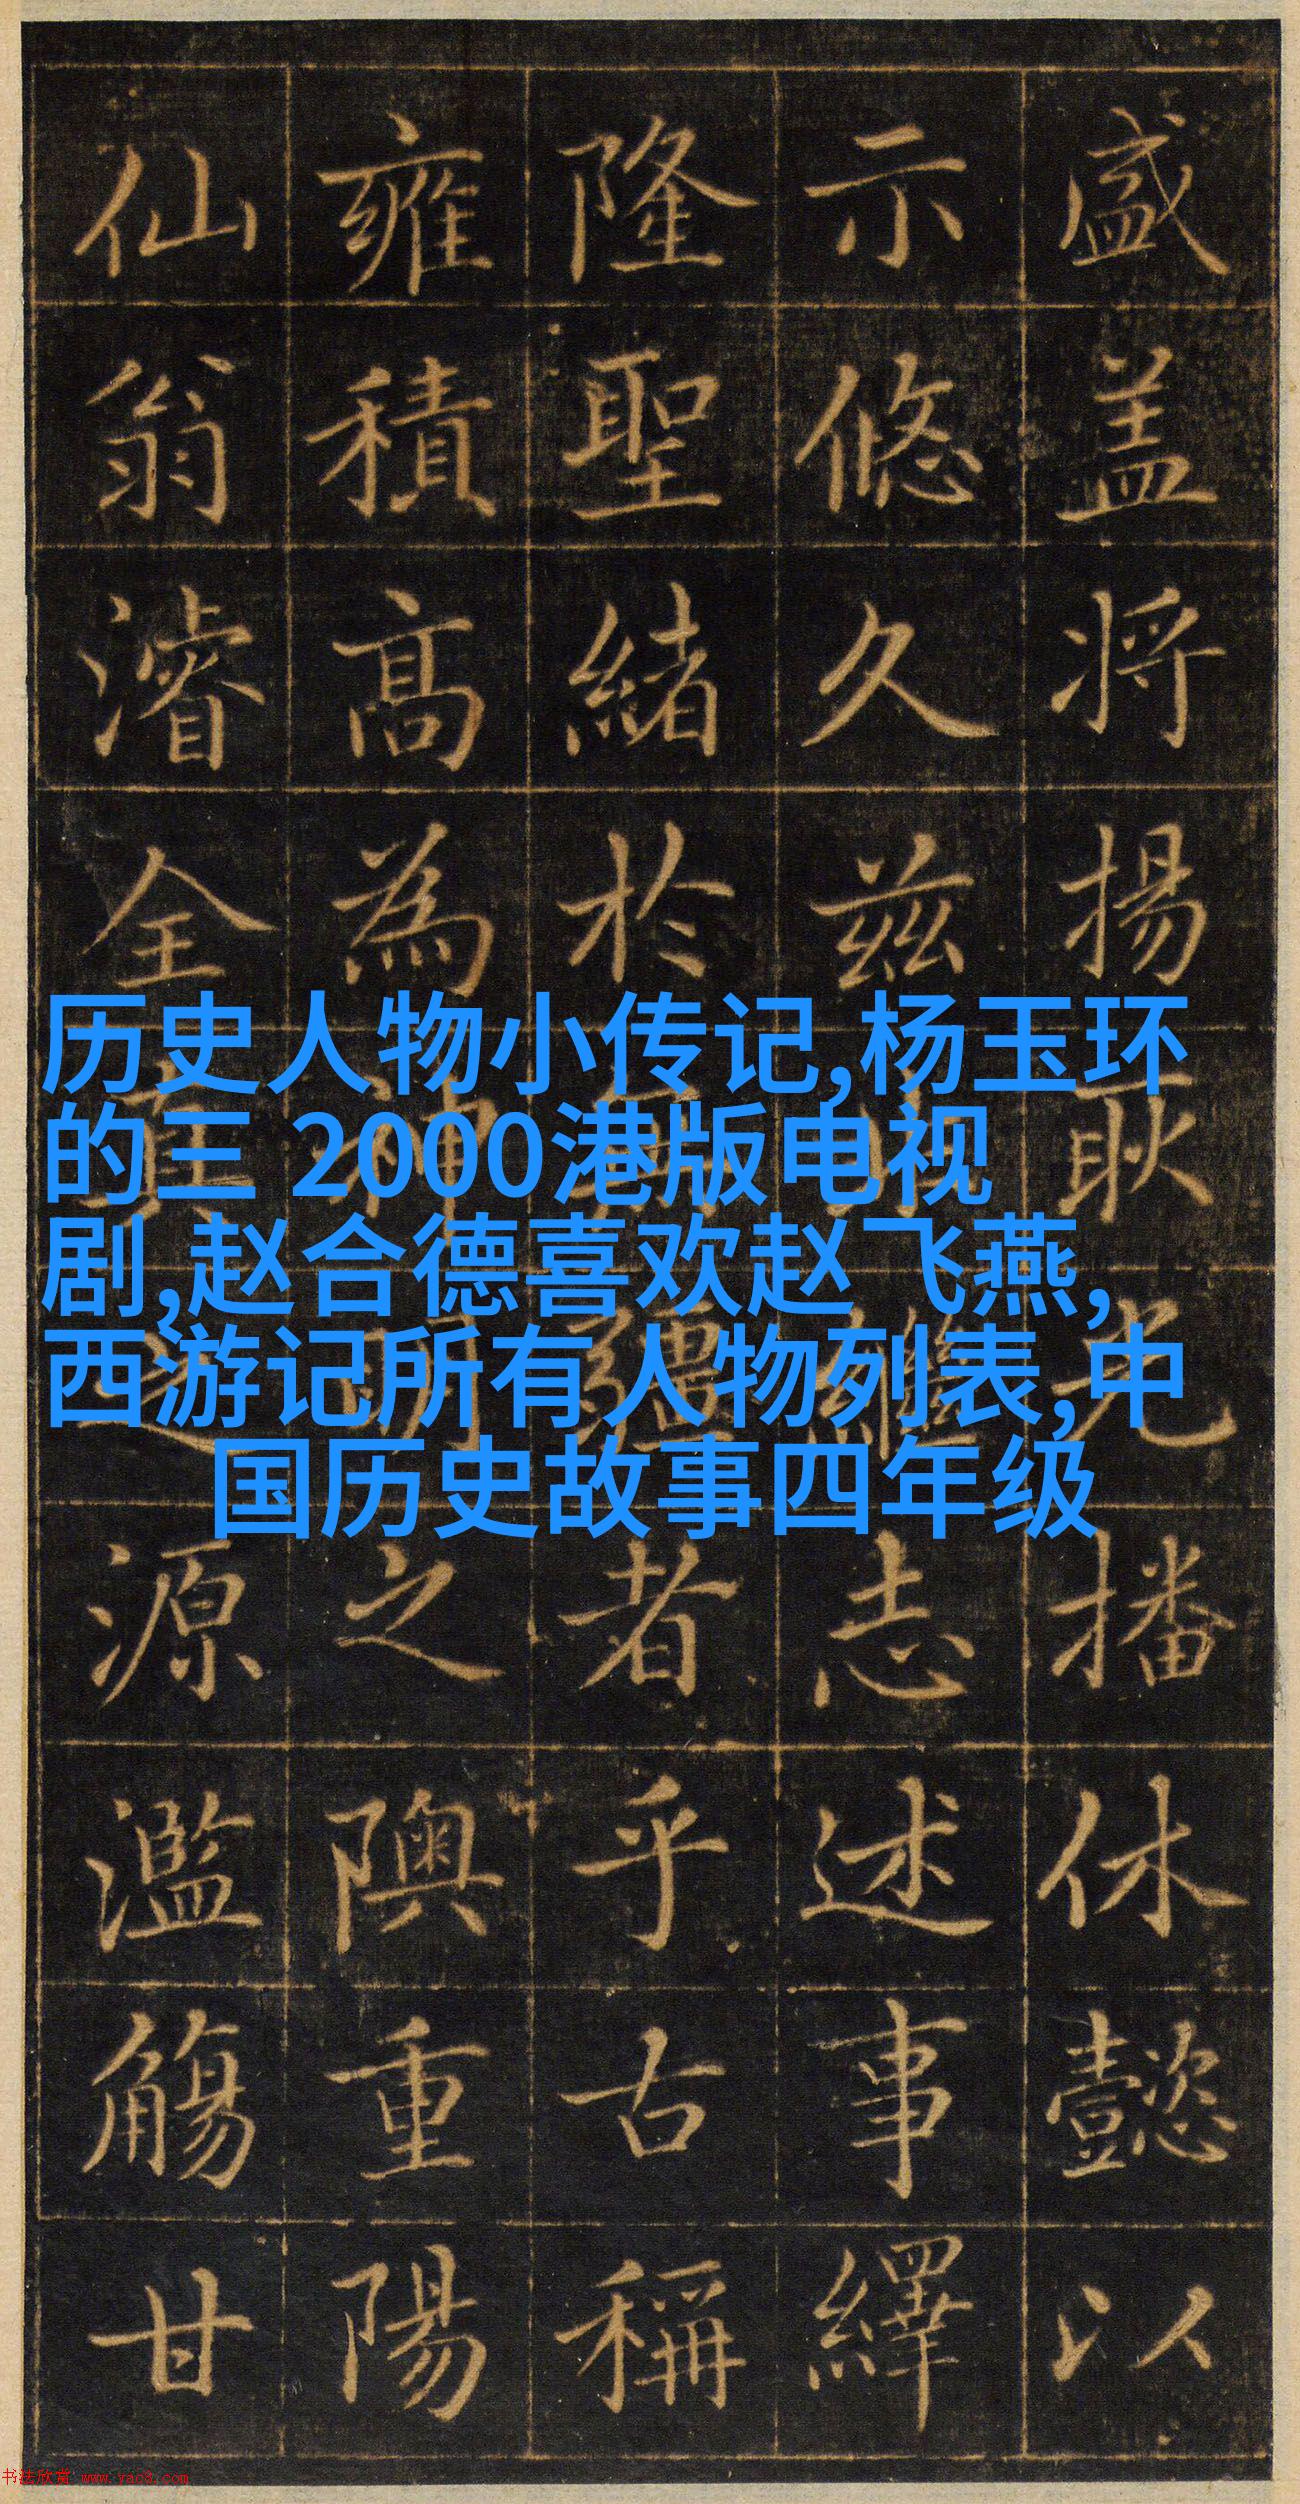 历史人物小传记,杨玉环
的三 2000港版电视
剧,赵合德喜欢赵飞燕,
西游记所有人物列表,中
国历史故事四年级
盛盖将揚耿光播休懿以
示悠久兹繼志述事繹
隆聖緒於疆者乎古稱
雍積高為神明之隩重陽
仙翁濬全真之源濫觴甘
书法欣赏 www.yac8.com